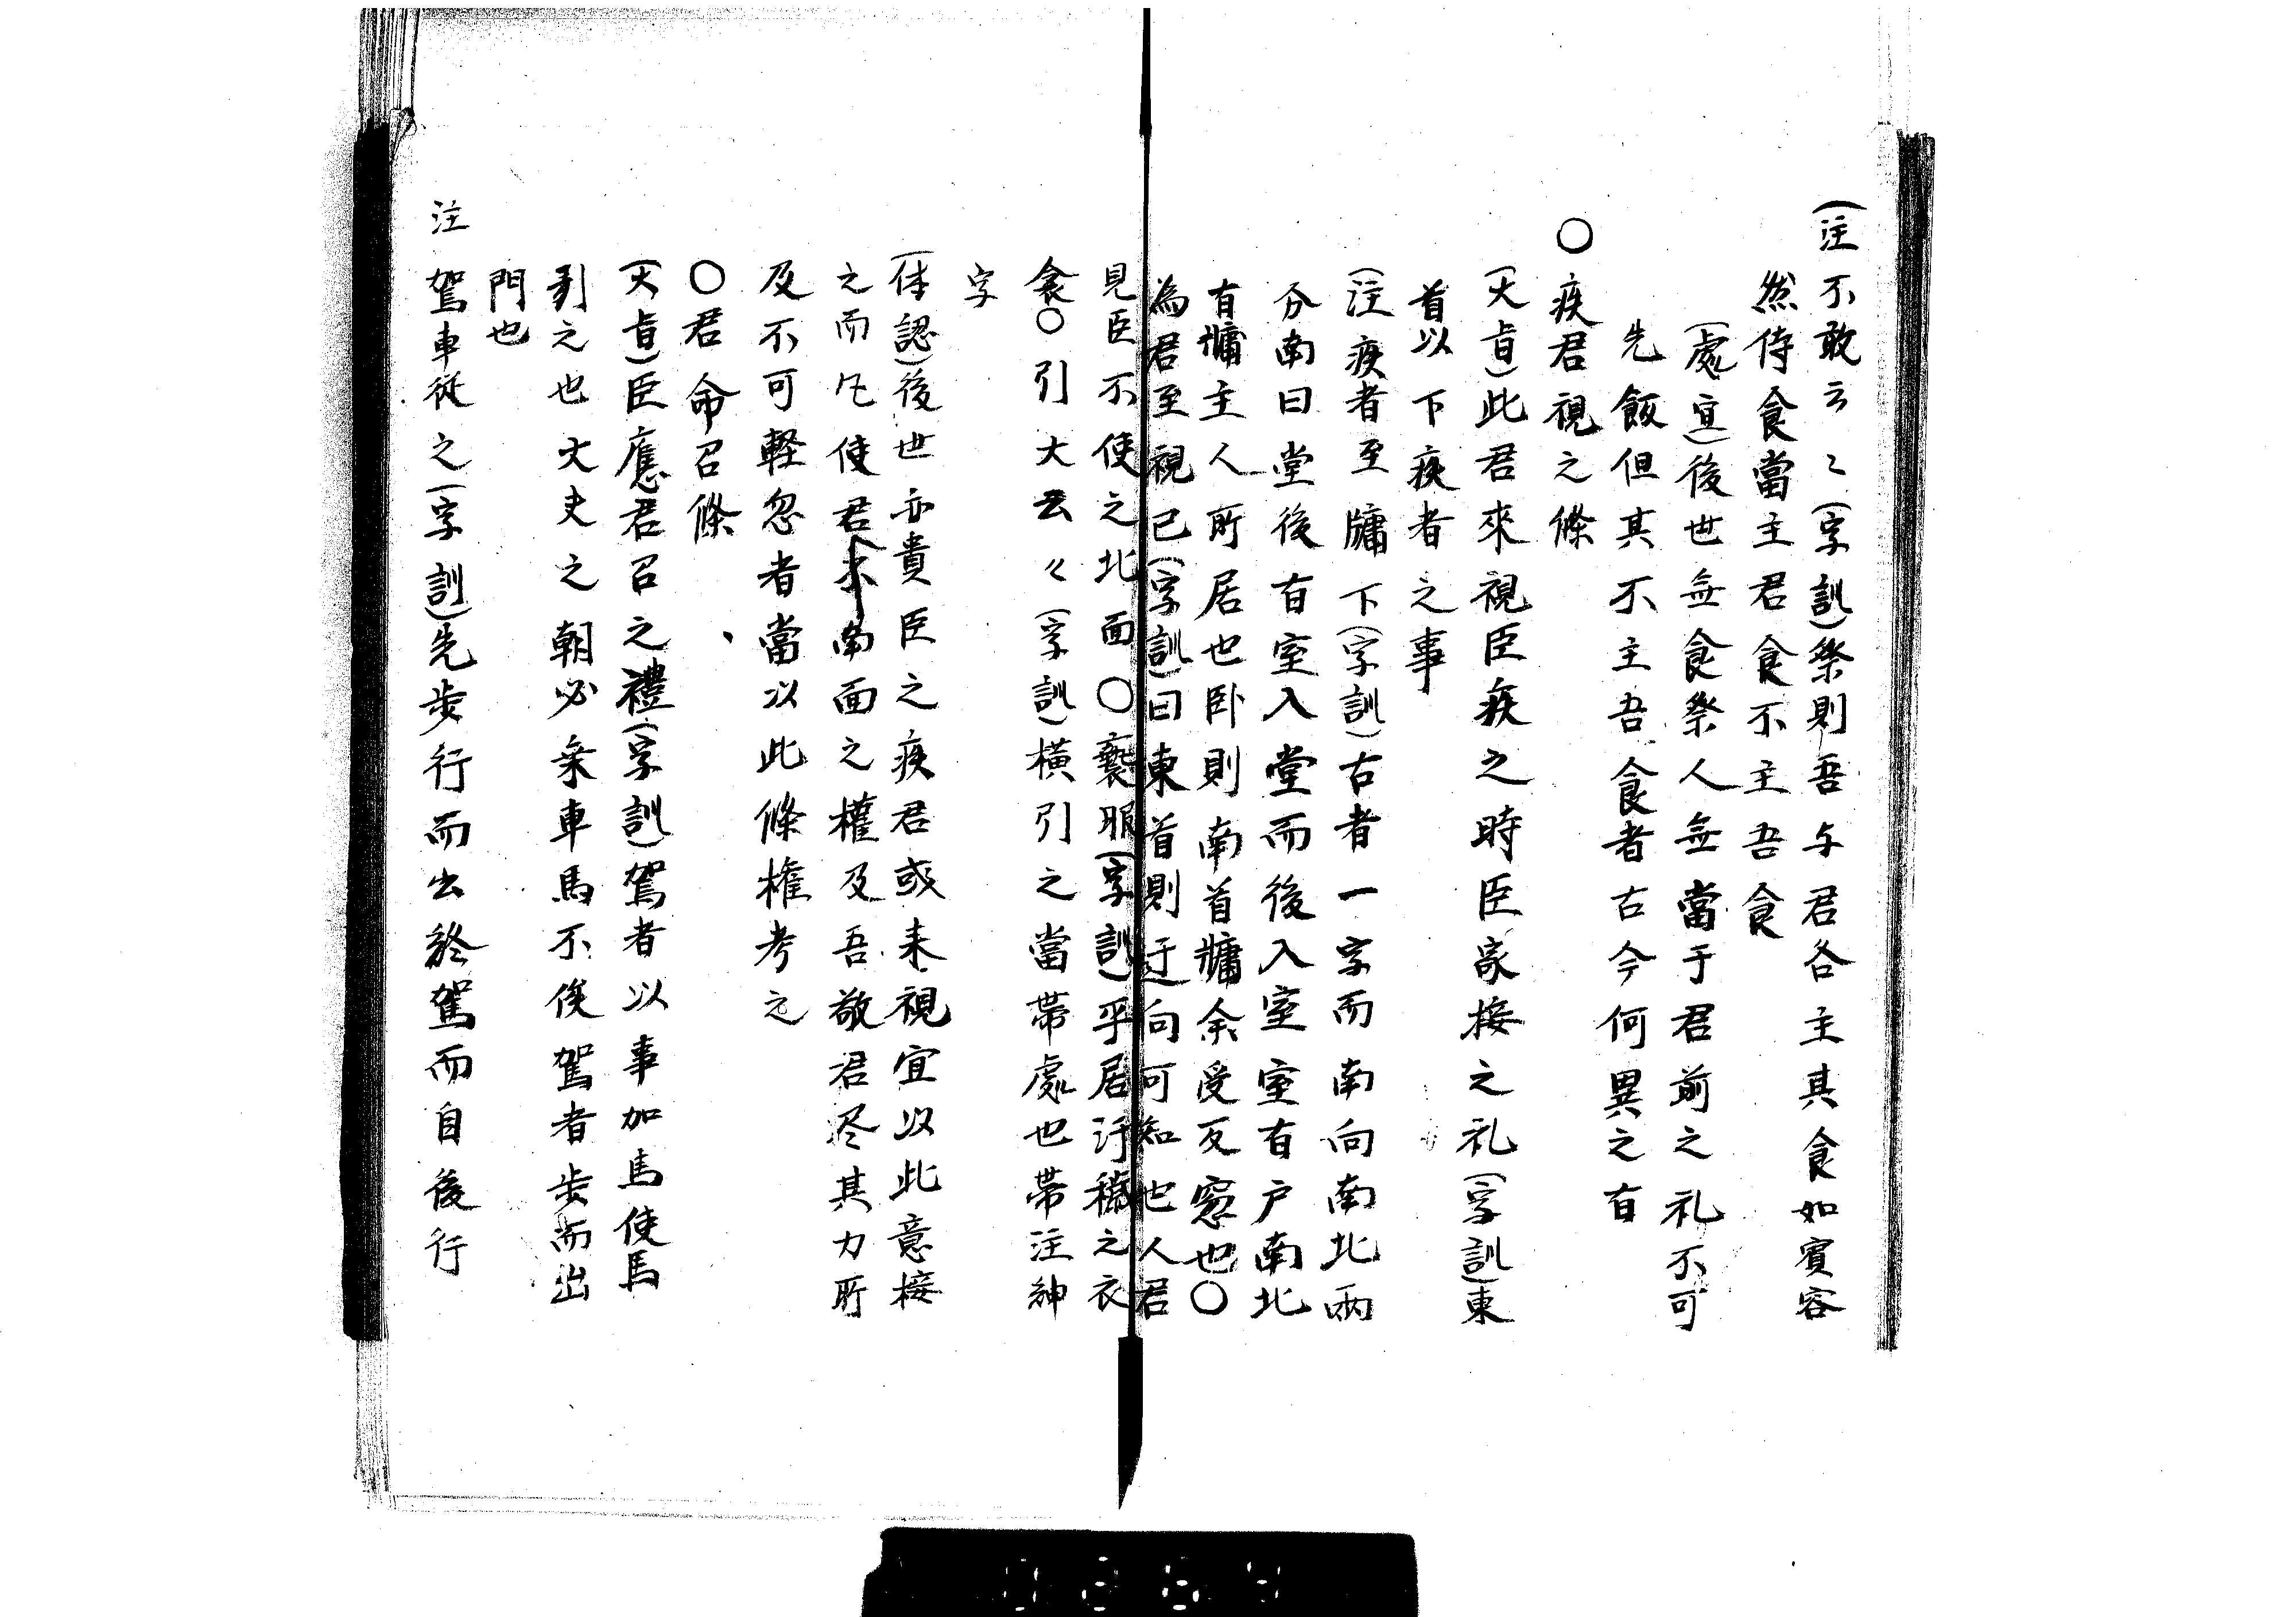 (注 不敢云〻(字訓)祭則吾与君各主其食如賓客
然侍食當主君食不主吾食
(處宜)後世無食祭人無當于君前之礼不可
先飯但其不主吾食者古今何異之有
〇疾君視之條
(大旨)此君來視臣疾之時臣家接之礼(字訓)東
首以下疾者之事
(注 疾者至牖下(字訓)古者一字而南向南北兩
分南曰堂後有室入堂而後入室室有户南北
有牖主人所居也卧則南首牖余受反窓也〇
為君至視已(字訓)曰東首則迂向可知也人君
見臣不使之北面〇褻服(字訓)平居汙穢之衣
衾〇引大云々(字訓)横引之當帯處也帯注紳
字
(体認)後世亦貴臣之疾君或来視宜以此意接
之而凡使君不南面之權及吾敬君尽其力所
及不可軽忽者當以此條権考之
〇君命召條
(大旨)臣應君召之禮(字訓)駕者以事加馬使馬
引之也大夫之朝必乗車馬不俟駕者歩而出
門也
注 駕車従之(字訓)先歩行而出終駕而自後行